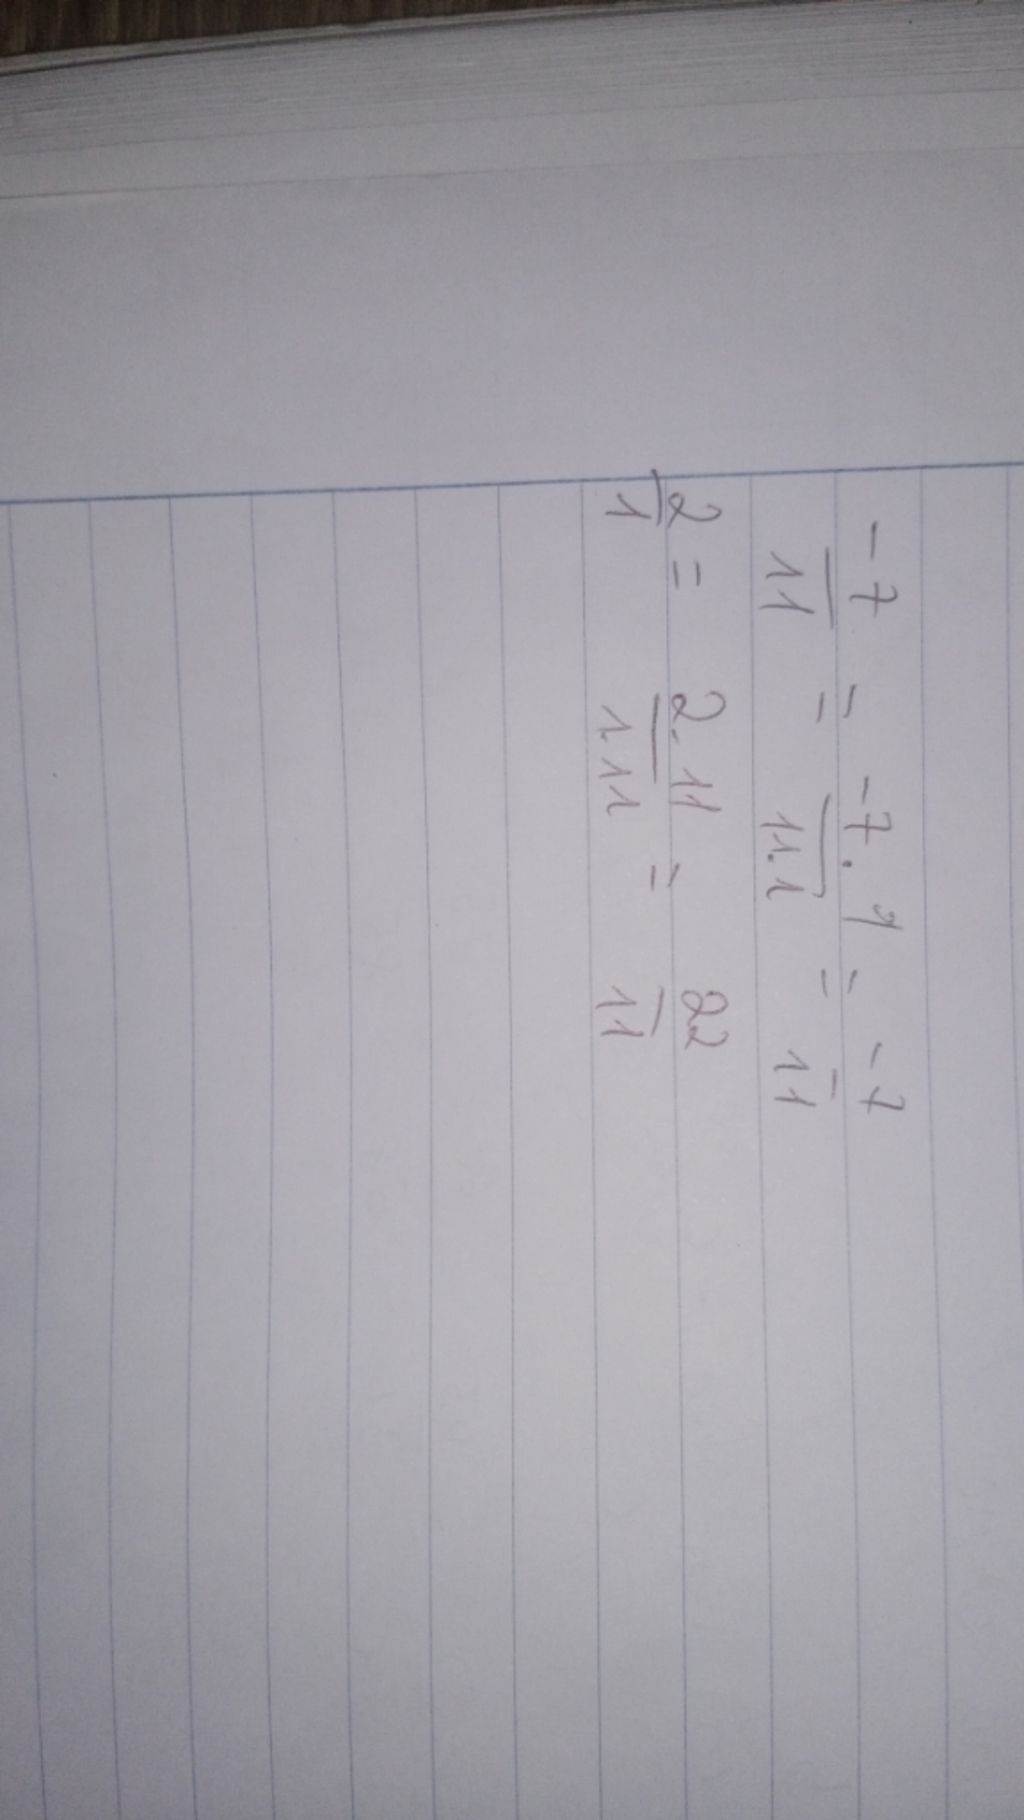 -7/11 = -7.1/11.1 = -7/11
2/1 = 2.11/1.11 = 22/11